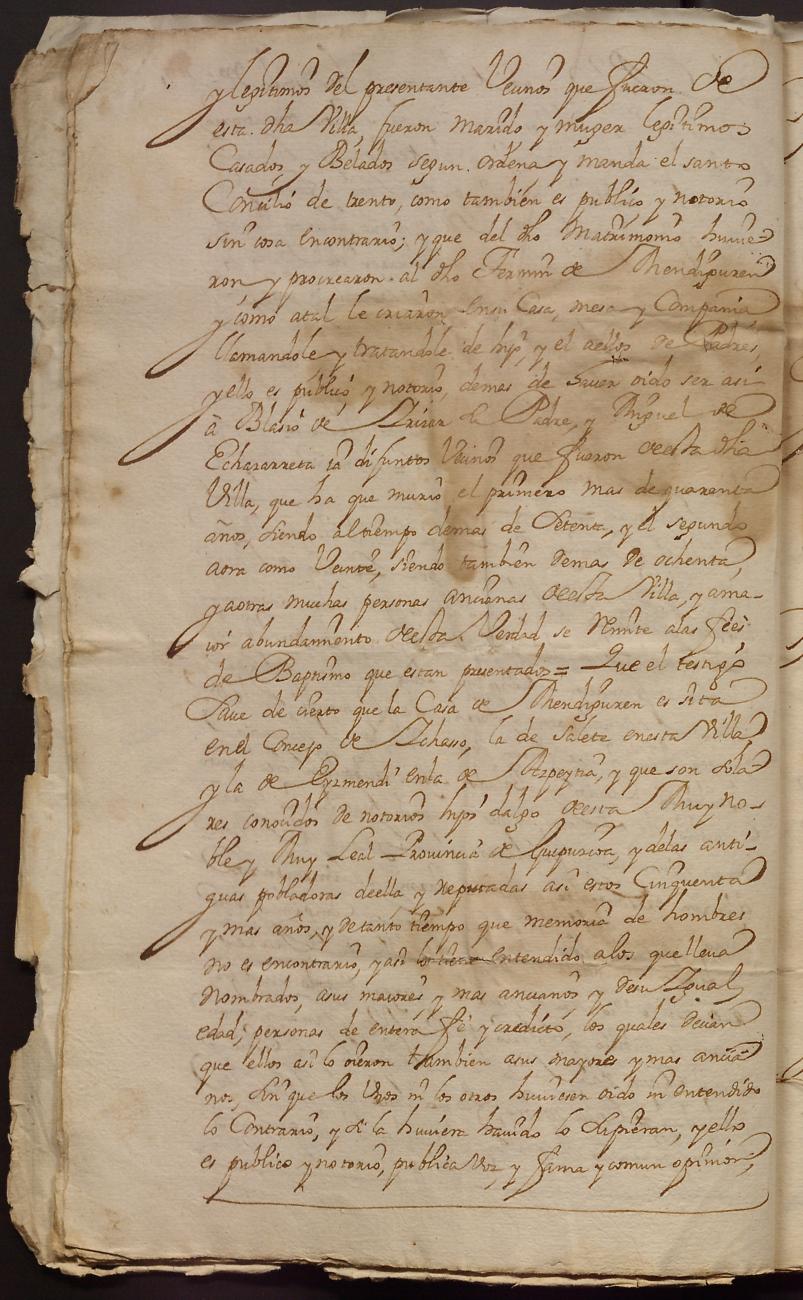 y legitimos del presentante Vecinos que fueron de
esta dha Villa, fueron marido y muger legitimos
Casados, y Belados segun ordena y manda el santo
Concilio de trento, como tambien es publico y notorio
sin cosa en contrario; y que del dho Matrimonio huvie
ron y procrearon al dho Fermin de Mendiguren
y como atal le criaron en su Casa, mesa y Compania
llamandole y tratandole de hijo, y el aellos de Padres,
y ello es publico y notorio, demas de haver oido ser asi
à Blasio de Padre, y Miguel de
Echararreta ia difuntos Vecinos que fueron de esta dha
Villa, que ha que murio el primero mas de quarenta
años, siendo al tiempo demas de Setenta, y el segundo
aora como Veinte, siendo tambien demas de ochenta,
y aotras muchas personas ancianas de esta Villa, y a ma-
ior abundamiento de esta Verdad se Remite alas fees
de Baptismo que estan presentados = Que el testigo
Save de cierto que la Casa de Mendiguren es sita
en el Concejo de la de Salete en esta Villa
y la de Eyzmendi en la de Azpeytia, y que son sola
res conocidos de notorios hijos dalgo de esta Muy no-
ble y Muy Leal Provincia de Guipuzcoa, y delas anti-
guas pobladoras de ella y Reputadas asi estos Cinquenta
y mas años, y de tanto tiempo que memoria de hombres
no es en contrario, y asi lo tiene entendido, alos que lleva
Nombrados, asus maiores y mas ancianos y de su Igual
edad; personas de entera fe y credicto, los quales decian
que ellos asi lo oieron tambien asus mayores y mas ancia
nos, sin que los Unos ni los otros huviesen oido ni entendido
lo Contrario, y si la huviera havido lo supieran, y ello
es publico y notorio, publica Voz, y fama y comun opinion,